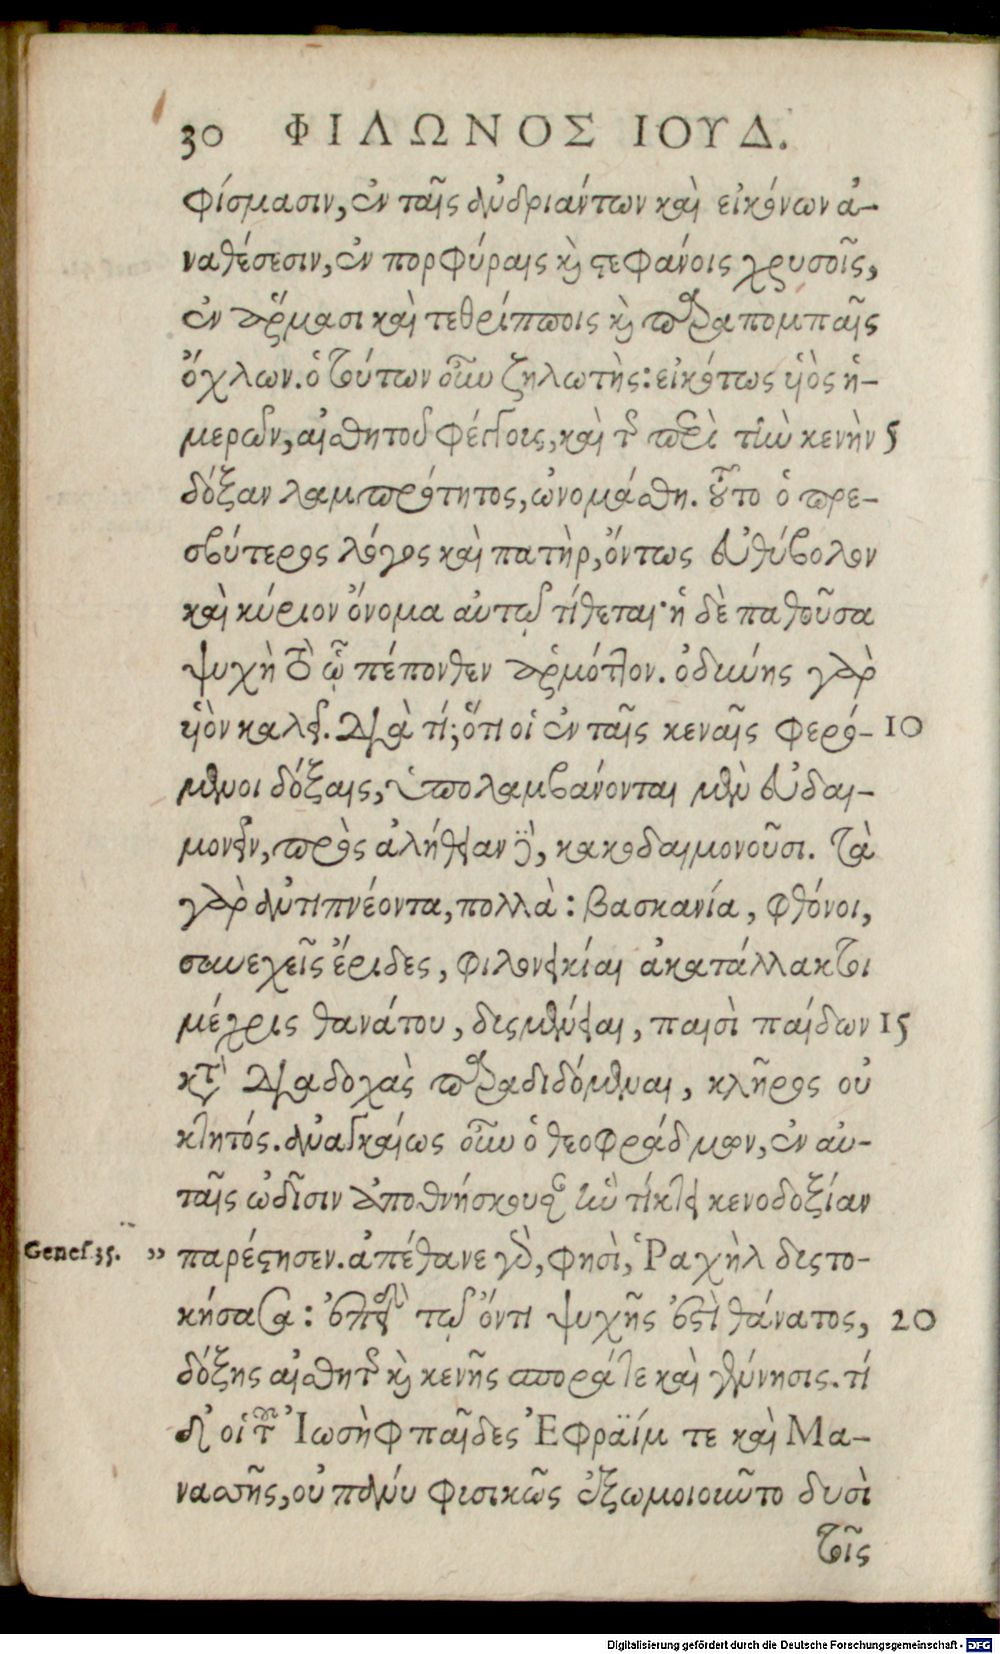 30 ΦΙΛΩΝΟΣ ΙΟΥΔ.
φίσμασιν, ἐν ταῖς ἀνδριάντων καὶ εἰκόνων ἀ-
ναθέσεσιν, ἐν πορφύραις καὶ στεφάνοις χρυσοῖς,
ἐν ἅρμασι καὶ τεθρίπποις καὶ παραπομπαῖς
ὄχλων. ὁ τούτων οὖν ζηλωτὴς: εἰκότως ὑιὸς ἡ-
μερῶν, αἰσθητοῦ φέγγους, καὶ τῆς περὶ τὴν κενὴν 5
δόξαν λαμπρότητος, ὠνομάσθη. τοῦτο ὁ πρε-
σβύτερος λόγος καὶ πατὴρ, ὄντως εὐθύβολον
καὶ κύριον ὄνομα αὐτῷ τίθεται· ἡ δὲ παθοῦσα
ψυχὴ τὸ ᾧ πέπονθεν ἁρμόττον. ὀδύνης γὰρ
ὑιὸν καλεῖ. διὰ τί; ὅτι οἱ ἐν ταῖς κεναῖς φερό- 10
μενοι δόξαις, ὑπολαμβάνονται μὲν εὐδαι-
μονεῖν, πρὸς ἀλήθειαν δὲ, κακοδαιμονοῦσι. τὰ
γὰρ ἀντιπνέοντα, πολλὰ: βασκανία, φθόνοι,
συνεχεῖς ἔριδες, φιλονεικίαι ἀκατάλλακτοι
μέχρις θανάτου, δυσμένειαι, παισὶ παίδων 15
κατὰ διαδοχὰς παραδιδόμεναι, κλῆρος οὐ
κτητός. ἀναγκαίως οὖν ὁ θεοφράδμων, ἐν αὐ-
ταῖς ὠδῖσιν ἀποθνήσκουσαν τὴν τίκτειν κενοδοξίαν
Genes. 35. „ παρέστησεν. ἀπέθανε γὰρ, φησὶ, Ῥαχὴλ δυστο-
κήσασα: ἐπειδὴ τῷ ὄντι ψυχῆς ἐστὶ θάνατος, 20
δόξης αἰσθητῆς καὶ κενῆς σπορά τε καὶ γένησις. τί
δ' οἱ τοῦ Ἰωσὴφ παῖδες Ἐφραῒμ τε καὶ Μα-
νασσῆς, οὐ πάνυ φυσικῶς ἐξωμοιοῦντο δυσὶ
τοῖς
Digitalisierung gefördert durch die Deutsche Forschungsgemeinschaft - DFG